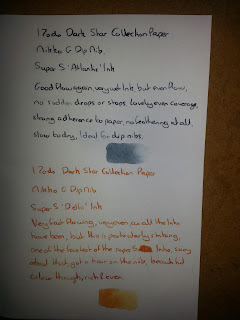 17odo Dark Star Collection Paper
Nikko G Dip Nib.
Super 5 'Atlantic' Ink
Good flow again, very wet ink, but even flow,
no sudden drops or stops. Lovely even coverage,
strong adherence to paper, no feathering at all,
slow to dry, Ideal for dip nibs.
17odo Dark Star Collection Paper
Nikko G Dip Nib
Super 5 'Delhi' Ink
Very fast flowing, very even, as all the inks
have been, but this is particularly striking,
one of the favorites of the super 5 Inks, sorry
about that, got a hair on the nib, beautiful
colour though, rich & even.